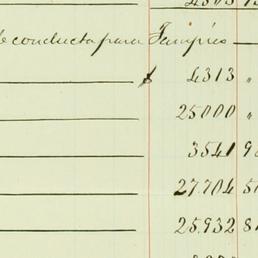 4303
e conducta para Tampico
$ 4313 "
25000 "
3541 9
27.704 5
25.932 8